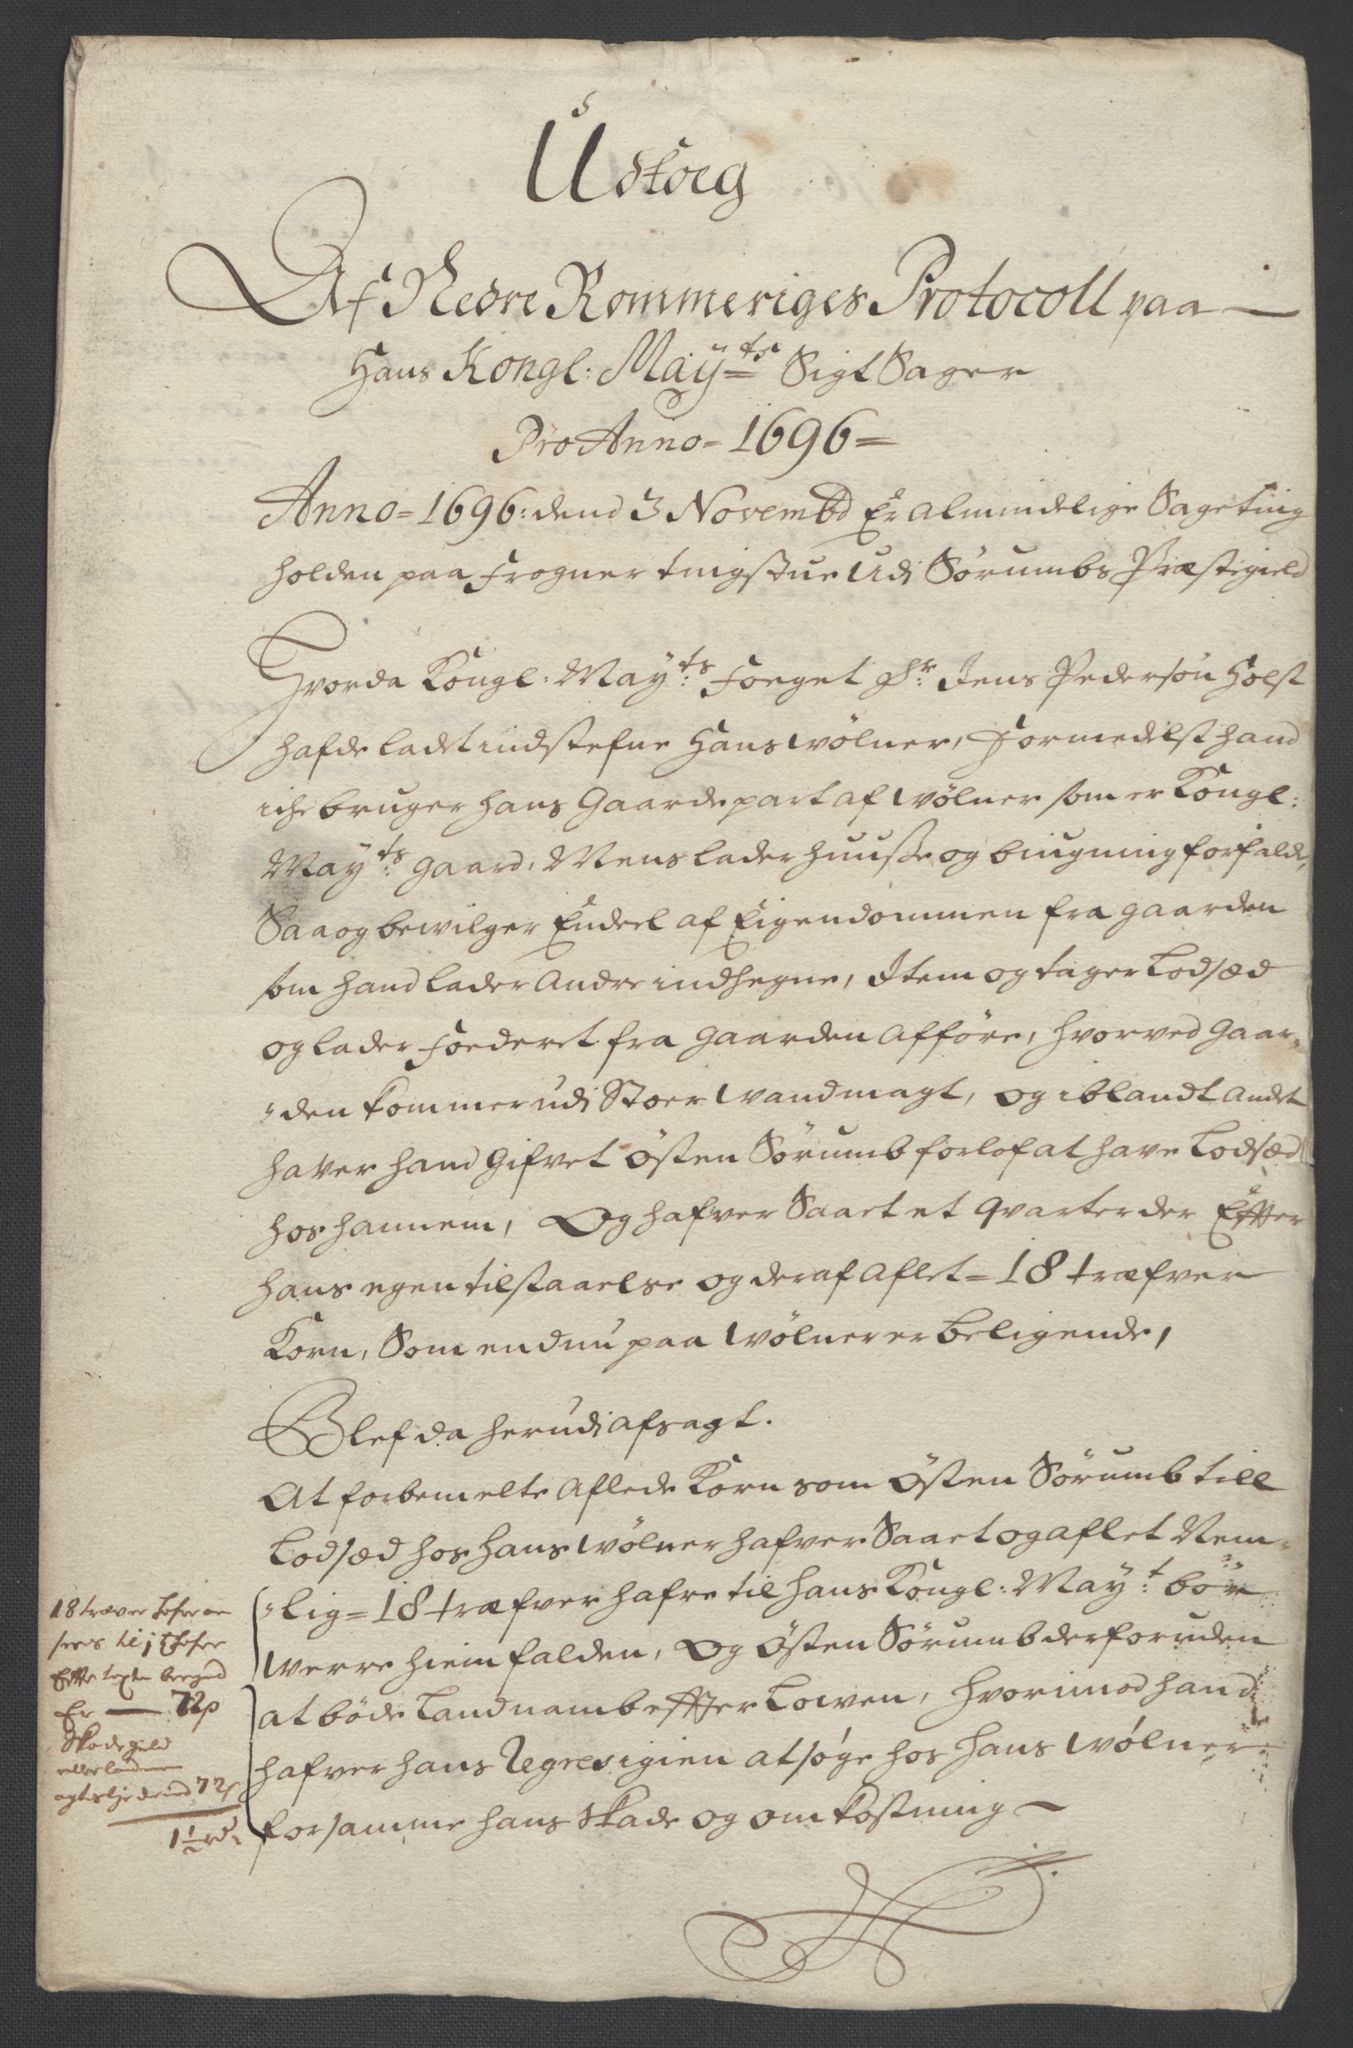 Udtog
Af Nedre Rommeriges Protocoll paa
Hans Kongl: May:ts Sigt Sager
Pro Anno = 1696 =
Anno = 1696: dend 3 Novembd Er Almindelige Sageting
holden paa Frogner tingstue Udi Sørumbs Præstegield
Hvorda Kongl: May:ts Foeget Sr: Jens Pedersøn Holst
hafde ladet indstefne Hans Wølner, Formedelst hand
iche bruger hans Gaardepart af Wølner som er Kongl:
May:ts gaard, Mens lader huusse og biugning forfalde,
Saa og bewilger Endeel af Eigendommen fra gaarden
som hand lader Andre indhegne, Item og tager Lodsæd
og lader Foederet fra Gaarden Afføre, hvorved Gaar=
=den kommer udi Stoer Wandmagt, og iblandt Andet
haver hand gifvet Østen Sørumb forlof at have Lodsæd
hos hannem, Og hafver Saaet et qvarter der Effter
hans egen tilstaaelse og deraf Aflet = 18 træfver
Korn, Som endnu paa Wølner er beligende,
Blef da herudi afsagt.
At forbemelte Aflede Korn som Østen Sørumb till
Lodsæd hos Hans Wølner hafver Saaet og aflet Nem=
=lig = 18 træfver hafre til Hans Kongl: May:t bør
Werre hiemfalden, og Østen Sørumb derforuden
at bøde Landnamb effter Lowen, hvorimod hand
hafver hans Regres igien at søge hos Hans Wølner
for samme hans Skade og omkostning
18 træver
72 s
Skadegield
72 s
1½ rd